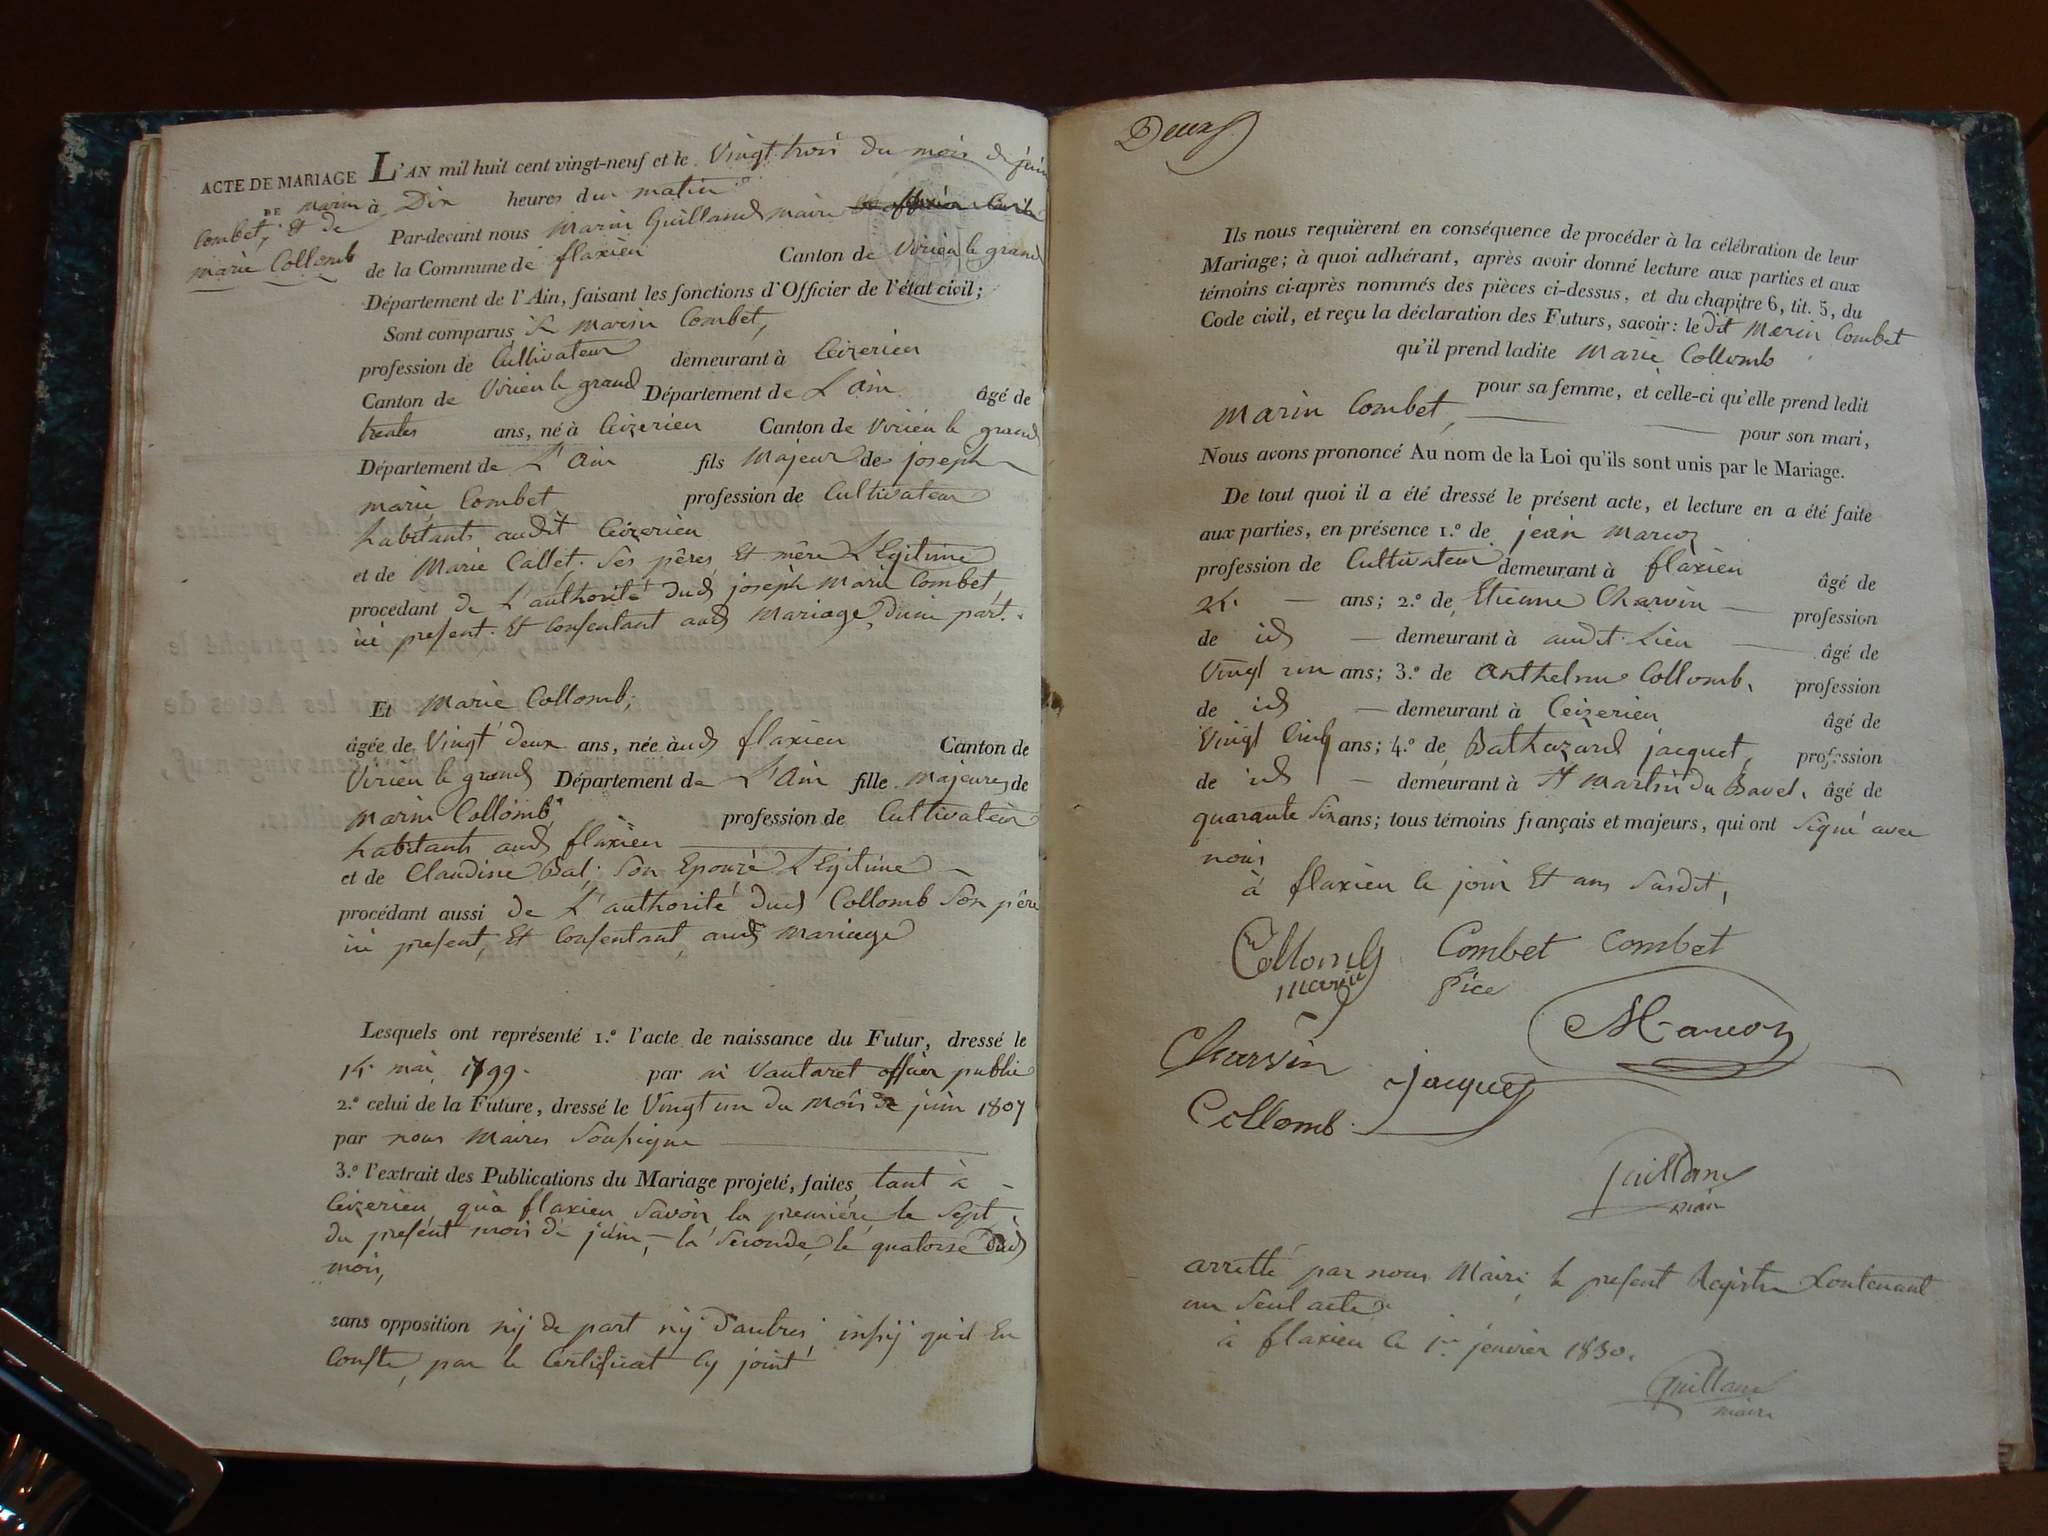 ACTE DE MARIAGE
DE Marin
Combet, Et de
Marie Collomb
L'AN mil huit cent vingt-neuf et le Vingt trois du mois de juin
à Dix heures du matin
Par-devant nous Marin Guilland maire
de la Commune de flaxieu Canton de Virieu le grand
Département de l'Ain, faisant les fonctions d'Officier de l'état civil;
Sont comparus Sr Marin Combet,
profession de Cultivateur demeurant à Ceizerieu
Canton de Virieu le grand Département de L'ain âgé de
trente ans, né à Ceizerieu Canton de Virieu le grand
Département de L'Ain fils Majeur de joseph
marie Combet profession de Cultivateur
habitant audit Ceizerieu
et de Marie Callet. Ses pères Et mère Légitime
procédant de L'authorité dud joseph Marie Combet
ici present. Et Consentant aud Mariage, d'une part.
Et Marie Collomb,
âgée de Vingt deux ans, née à ud flaxieu Canton de
Virieu le grand Département de L'Ain fille Majeure de
Marin Collomb, profession de Cultivateur
habitant aud flaxieu
et de Claudine Bal, Son Epouze Légitime
procédant aussi de L'authorité dud Collomb Son père
ici present, Et Consentant, aud Mariage
Lesquels ont représenté 1.º l'acte de naissance du Futur, dressé le
14 mai 1799. par m Vautaret officier public
2.º celui de la Future, dressé le Vingt un du Mois de juin 1807
par nous Maires Soussigné
3.º l'extrait des Publications du Mariage projeté, faites, tant à
Ceizerieu qu'à flaxieu Savoir, la première le Sept
du present mois de juin, la Seconde, le quatorze dud
mois,
sans opposition nij de part nij d'autres, inssij qu'il En
Conste, par le Certificat Cy joint
Deux
Ils nous requièrent en conséquence de procéder à la célébration de leur
Mariage; à quoi adhérant, après avoir donné lecture aux parties et aux
témoins ci-après nommés des pièces ci-dessus, et du chapitre 6, tit. 5, du
Code civil, et reçu la déclaration des Futurs, savoir: le dit Marin Combet
qu'il prend ladite Marie Collomb
pour sa femme, et celle-ci qu'elle prend ledit
Marin Combet,
pour son mari,
Nous avons prononcé Au nom de la Loi qu'ils sont unis par le Mariage.
De tout quoi il a été dressé le présent acte, et lecture en a été faite
aux parties, en présence 1.º de jean Marcoz
profession de Cultivateur demeurant à flaxieu âgé de
24 ans; 2.º de Etienne Charvin profession
de id demeurant à audit Lieu âgé de
Vingt un ans; 3.º de Anthelme Collomb, profession
de id demeurant à Ceizerieu âgé de
Vingt Cinq ans; 4.º de Balthazard jacquet, profession
de id demeurant à St Martin du Bavel, âgé de
quarante Six ans; tous témoins français et majeurs, qui ont Signé avec
nous
à flaxieu le join Et ans Susdit,
Collomb
Marie
Combet Combet
Père
Marcoz
Charvin
jacquet
Collomb
Guilland
maire
arretté par nous Maire, le present Registre Contenant
un Seul acte
à flaxieu le 1er janvier 1830.
Guilland
maire